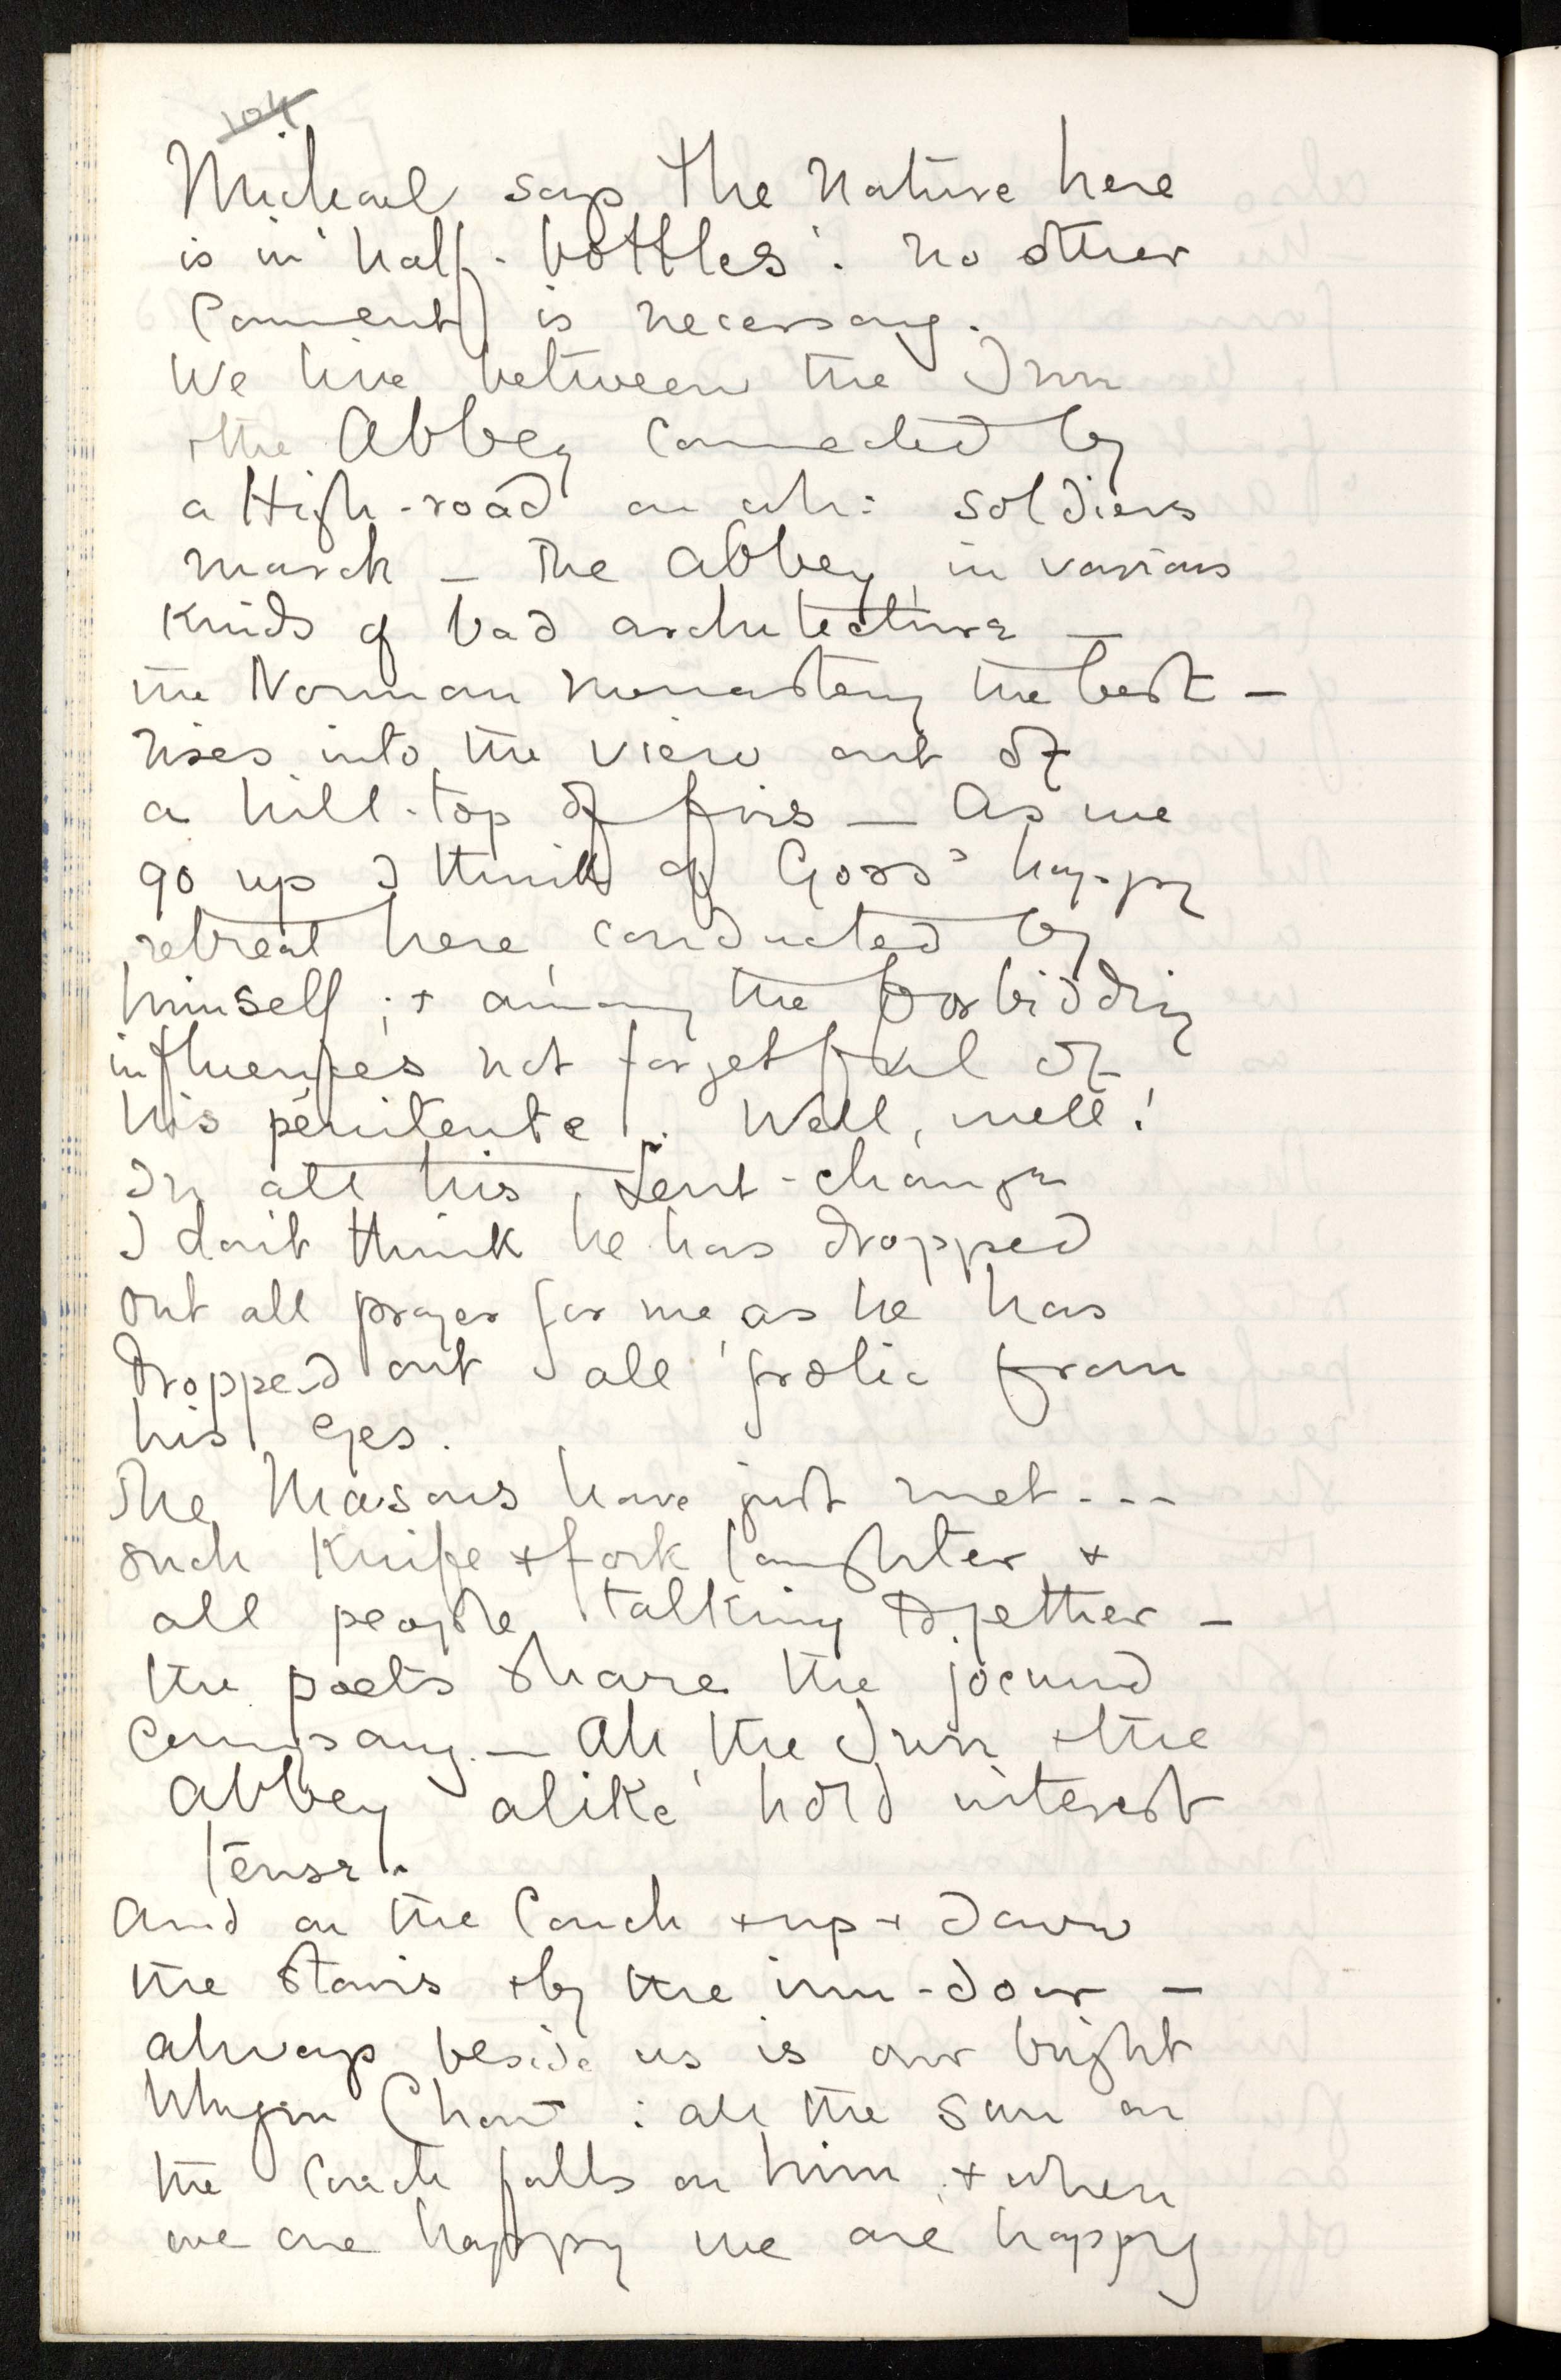 104
Michael says the Nature here
is in 'half-bottles'. No other
Comment is necessary.
We live between the Inn
+ the Abbey connected by
a High-road on wh: soldiers
march — The Abbey, in various
kinds of bad architecture —
the Norman monastery the best —
rises into the view out of
a hill-top of firs — As we
go up I think of Goss' happy
retreat here, conducted by
himself; + among the forbidding
influences not forgetful of
his penitente. Well, well!
In all his Lent-change
I don't think he has dropped
out all prayer for me, as he has
dropped out all frolic from
his eyes.
The Masons have just met...
such Knife + fork laughter +
all people talking together —
the poets share the jocund
company. — Ah, the Inn + the
Abbey alike hold interest
tense.
And on the Coach + up + down
the stairs + by the inn-door —
always beside us is our bright
Whym Chow: all the sun on
the Coach falls on him, + when
we are happy we are happy